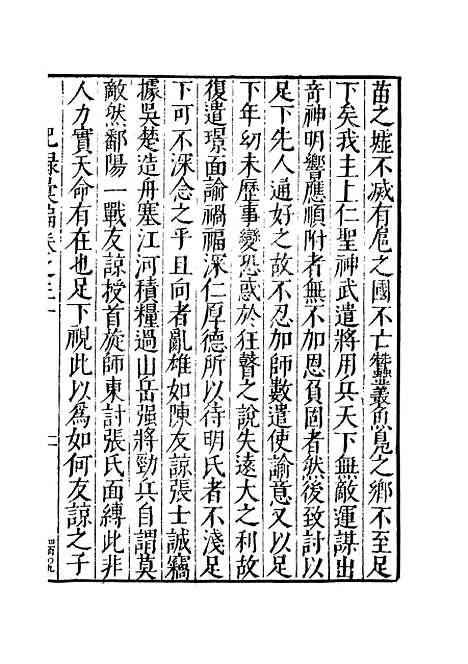 苗之墟不滅有扈之國不亡蠶叢魚鳧之鄉不至足
下矣我主上仁聖神武遣將用兵天下無敵運謀出
奇神明響應順附者無不加恩負固者然後致討以
足下先人通好之故不忍加師數遣使諭意又以足
下年幼未歷事變恐惑於狂瞽之說失遠大之利故
復遣璟面諭禍福深仁厚德所以待明氏者不淺足
下可不深念之乎且向者亂雄如陳友諒張士誠竊
據吳楚造舟塞江河積糧過山岳强將勁兵自謂莫
敵然鄱陽一戰友諒授首旋師東討張氏面縛此非
人力實天命有在也足下視此以爲如何友諒之子
紀錄彙編卷之三十